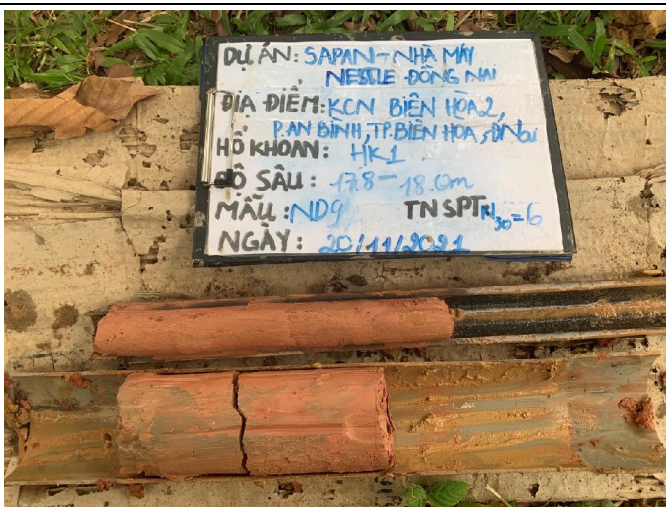 DỰ ÁN: SAPAN-NHÀ MÁY
NESTLE-ĐỒNG NAI
ĐỊA ĐIỂM: KCN BIÊN HÒA2,
P.AN BÌNH, TP.BIÊN HÒA, ĐNai
HỐ KHOAN: HK1
ĐỘ SÂU: 17.8-18.0m
MẪU: ND9 TN SPT: N30=6
NGÀY: 20/11/2021